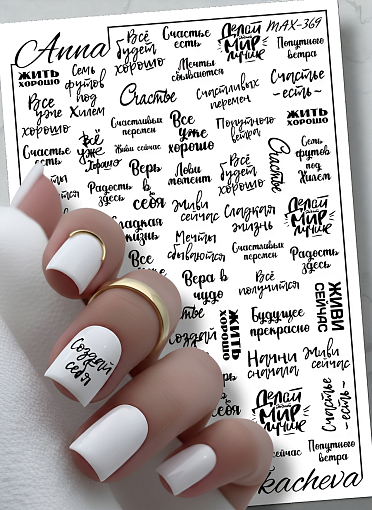 Anna
Всё
будет
хорошо
Счастье
есть
Делай
этот
Мир
лучше
MAX-369
Попутного
ветра
ЖИТЬ
ХОРОШО
Семь
футов
под
Килем
Мечты
сбываются
Счастье
~есть~
Все
уже
хорошо
Счастье
Счастливых
перемен
Счастливых
перемен
Живи сейчас
Все
уже
хорошо
Попутного
ветра
ЖИТЬ
ХОРОШО
Счастье
есть
Всё
уже
Хорошо
Верь
в
себя
Лови
момент
Всё
будет
хорошо
Счастье
Семь
футов
под
Килем
Радость
здесь
Живи
сейчас
Сладкая
жизнь
Делай
Мир
лучше
Сладкая
жизнь
Мечты
сбываются
Счастливых
перемен
Радость
здесь
Вера в
чудо
Всё
получится
ЖИВИ
СЕЙЧАС
Создай
себя
создай
ЖИТЬ
ХОРОШО
Будущее
прекрасно
Начни
сначала
Живи
сейчас
себя
Делай
Мир
лучше
Счастье
~есть~
сейчас
Попутного
ветра
kacheva